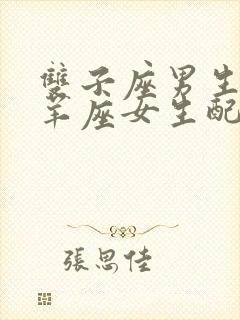 雙子座男生
羊座女生配
張思佳